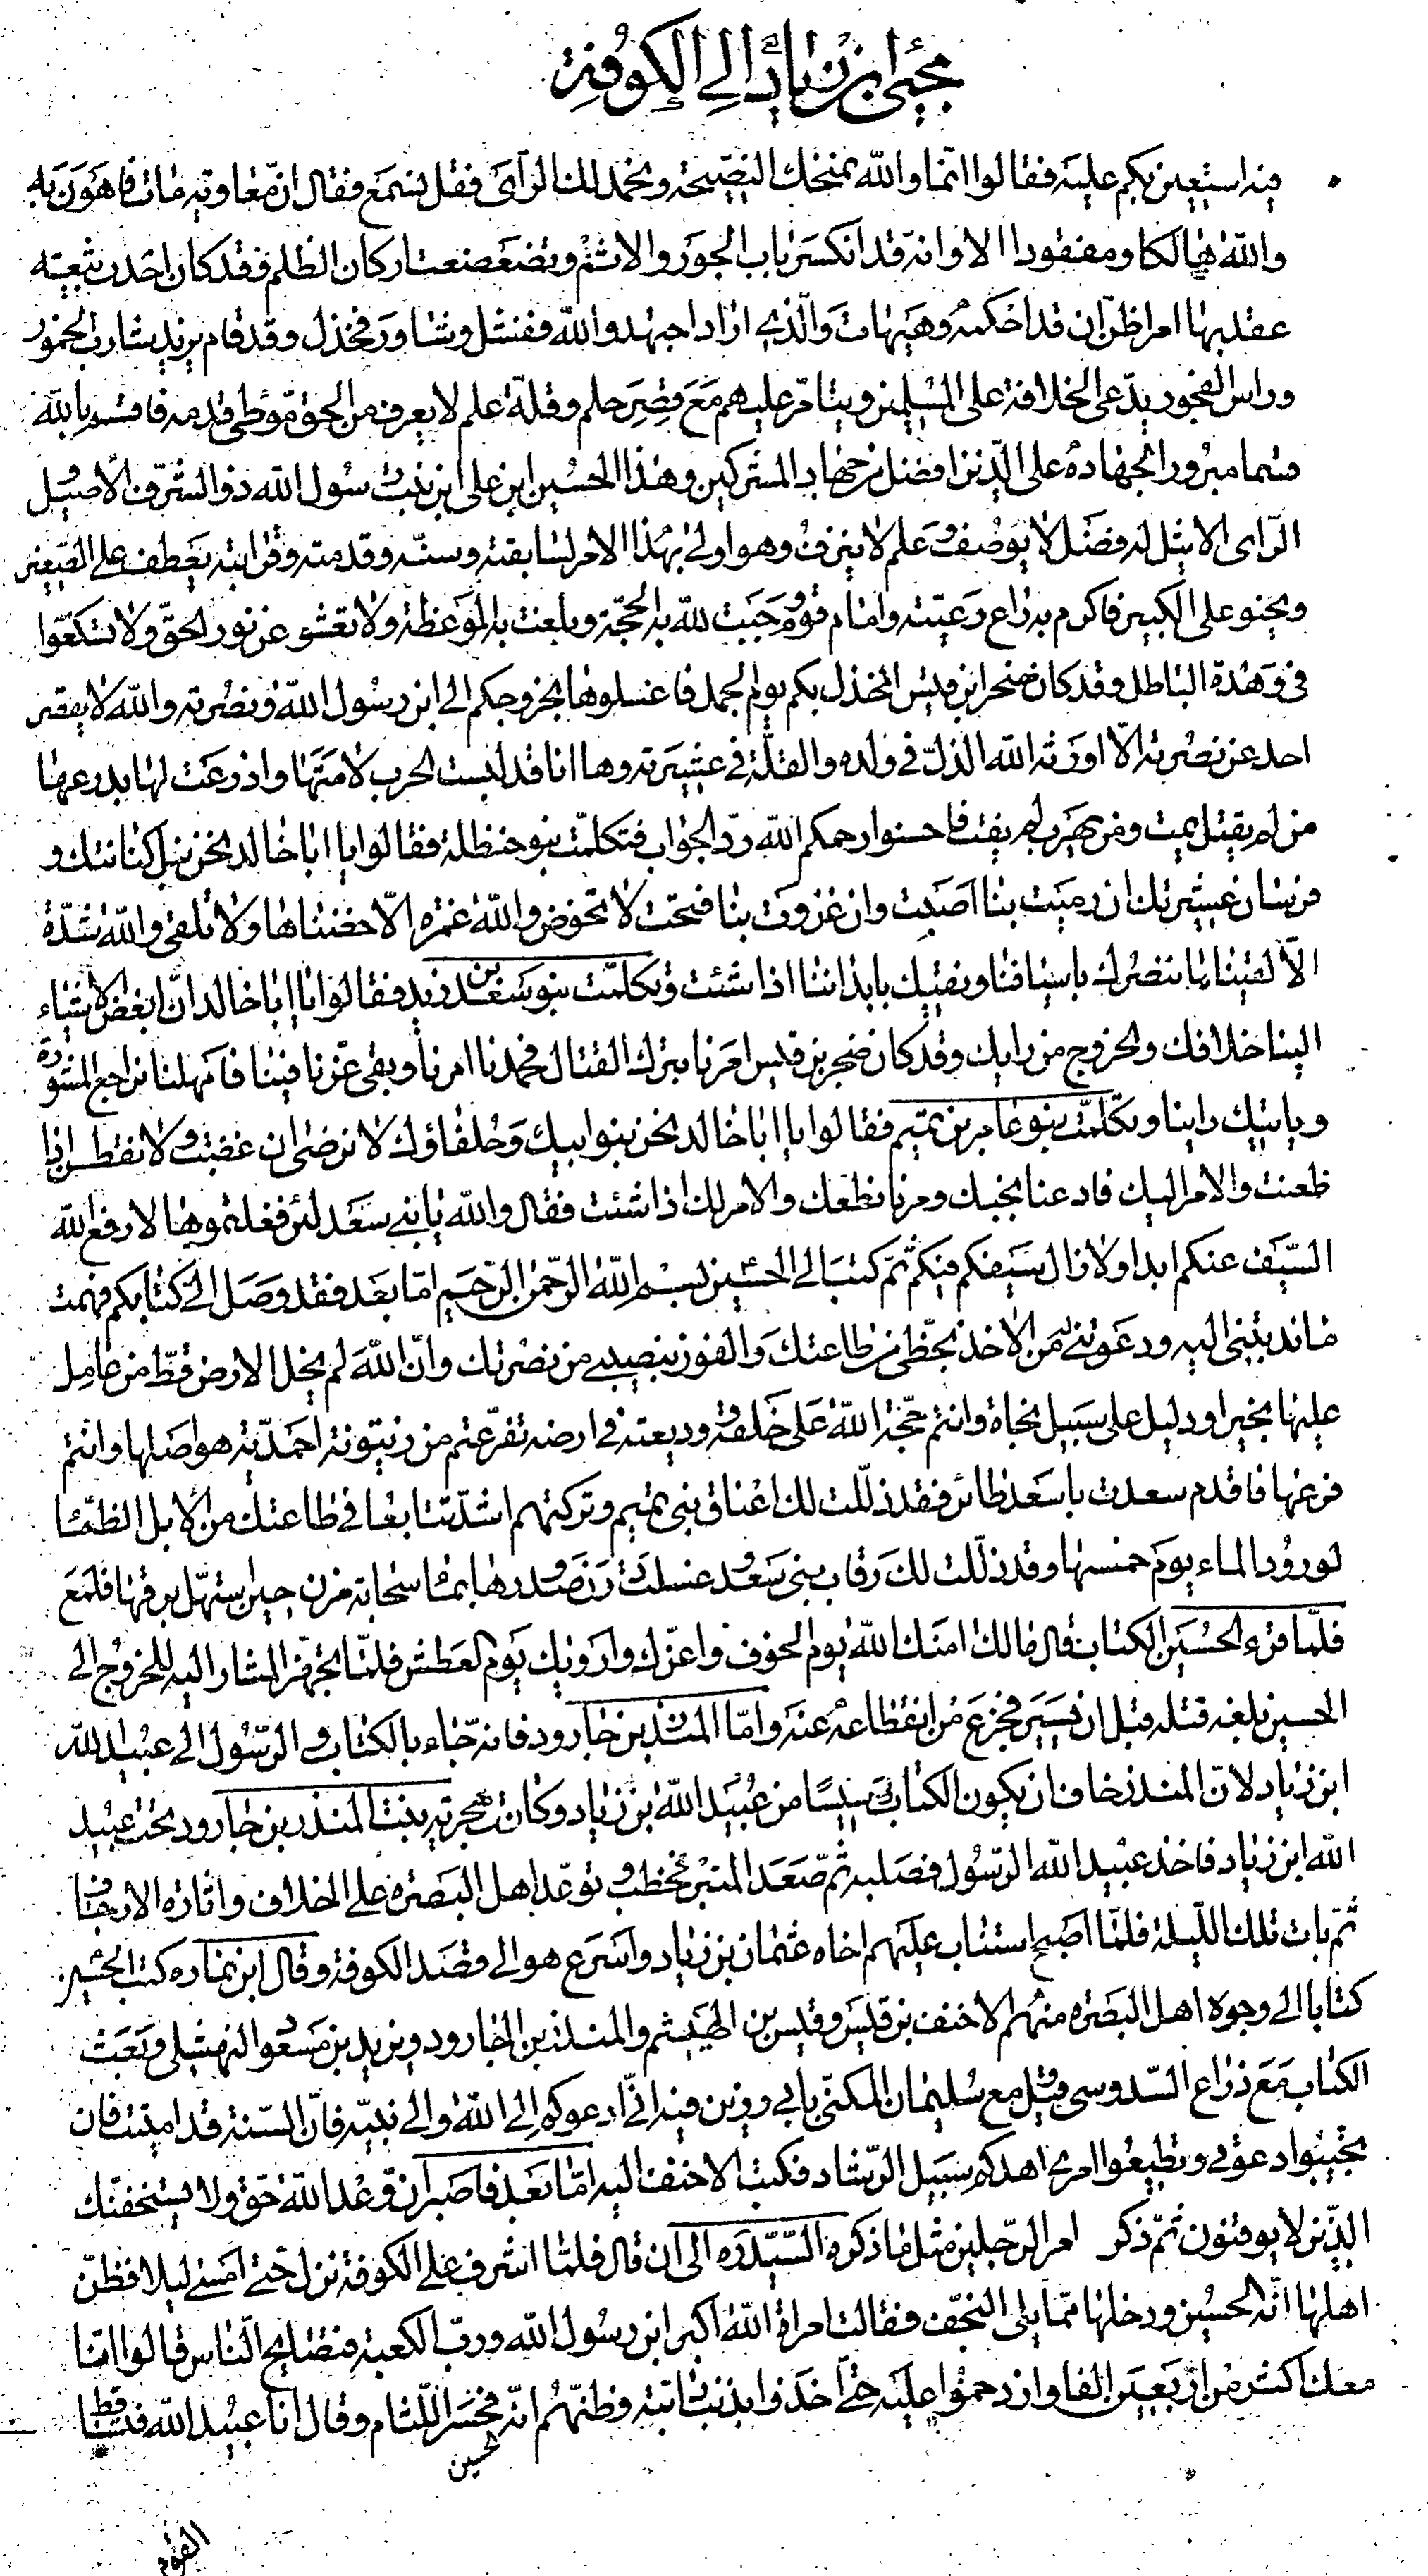 مجیئ ابن زیاد الی الکوفة
فیه استعین بکم علیه فقالوا انّما والله نمنحك النصیحة ونحمد لك الرّای فقل نسمع فقال ان معاویة مات فاهون به
والله هالکا ومفقودا الا وانّه قد انکسر باب الجور والاثم وتضعضعت ارکان الظلم وقد کان احدث بیعة
عقد بها امرا ظنّ ان قد احکمه وهیهات والّذی اراد اجتهد والله ففشل وشاور فخذل وقد قام یزید شارب الخمور
وراس الفجور یدّعی الخلافة علی المسلمین ویتامّر علیهم مع قصر حلم وقلّة علم لا یعرف من الحق موطئ قدمه فاقسم بالله
قسما مبرورا لجهاده علی الدّین افضل من جهاد المشرکین وهذا الحسین ابن علی ابن بنت رسول الله ذو الشرف الاصیل
الرّای الاثیل له فضل لا یوصف وعلم لا ینزف وهو اولی بهذا الامر لسابقته وسنّه وقدمته وقرابته یعطف علی الصّغیر
ویحنو علی الکبیر فاکرم به راع رعیّته وامام قوم وجبت لله به الحجّة وبلغت به الموعظة ولا تعشو عن نور الحقّ ولا تسکعّوا
فی وهدة الباطل وقد کان صخر ابن قیس انخذل بکم یوم الجمل فاغسلوها بخروجکم الی ابن رسول الله ونصرته والله لا یقصر
احد عن نصرته الّا اورثه الله الذلّ فی ولده والقلّة فی عشیرته وها انا قد لبست الحرب لامتها وادّرعت لها بدرعها
من لم یقتل یمت ومن یهرب لم یفت فاحسنوا رحمکم الله ردّ الجواب فتکلّمت بنو حنظلة فقالوا یا ابا خالد نحن نبل کنانتك و
فرسان عشیرتك ان رمیت بنا اصبت وان غزوت بنا فتحت لا تخوض والله غمرة الّا خضناها ولا تلقی والله شدّة
الّا لقیناها ننصرك باسیافنا ونقیك بابداننا اذا شئت وتکلّمت بنو سعد بن زید فقالوا یا ابا خالد انّ ابغض الاشیاء
الینا خلافك والخروج من رایك وقد کان صخر بن قیس امرنا بترك القتال فحمدنا امرنا وبقی عزّنا فینا فامهلنا نراجع المشورة
ویاتیك راینا وتکلّمت بنو عامر بن تمیم فقالوا یا ابا خالد نحن بنو ابیك وحلفاؤك لا نرضی ان غضبت ولا نقطن اذا
ظعنت والامر الیك فادعنا نجبك ومرنا نطعك والامر لك اذا شئت فقال والله یا بنی سعد لئن فعلتموها لا رفع الله
السّیف عنکم ابدا ولا زال سیفکم فیکم ثمّ کتب الی الحسین بسم الله الرّحمن الرّحیم امّا بعد فقد وصل الیّ کتابکم فهمت
ما ندبتنی الیه ودعوتنی له من الاخذ بحظّی من طاعتك والفوز بنصیبی من نصرتك وانّ الله لم یخل الارض قطّ من عامل
علیها بخیر او دلیل علی سبیل نجاة وانتم حجّة الله علی خلقه وودیعته فی ارضه تفرّعتم من زیتونة احمدیّة هو اصلها وانتم
فرعها فاقدم سعدت باسعد طائر فقد ذلّلت لك اعناق بنی تمیم وترکتهم اشدّ تتابعا فی طاعتك من الابل الظّماء
لورود الماء یوم خمسها وقد ذلّلت لك رقاب بنی سعد وغسلت درن صدورها بماء سحابة مزن حین استهلّ برقها فلمع
فلمّا قرء الحسین الکتاب قال مالك امنك الله یوم الخوف واعزّك وارویك یوم العطش فلمّا تجهّز المشار الیه للخروج الی
الحسین بلغه قتله قبل ان یسیر فجزع من انقطاعه عنه وامّا المنذر بن جارود فانّه جاء بالکتاب والرّسول الی عبید الله
ابن زیاد لانّ المنذر خاف ان یکون الکتاب دسیسا من عبید الله بن زیاد وکانت بحریة بنت المنذر بن جارود تحت عبید
الله ابن زیاد فاخذ عبید الله الرّسول فصلبه ثمّ صعد المنبر فخطب وتوعّد اهل البصرة علی الخلاف واثارة الارجاف
ثمّ بات تلك اللّیلة فلمّا اصبح استناب علیهم اخاه عثمان بن زیاد واسرع هو الی قصد الکوفة وقال ابن نما ره کتب الحسین
کتابا الی وجوه اهل البصرة منهم الاحنف بن قیس وقیس بن الهیثم والمنذر بن الجارود ویزید بن مسعود النهشلی وبعث
الکتاب مع ذراع السّدوسی وقیل مع سلیمان المکنّی بابی رزین فیه انّی ادعوکم الی الله والی نبیّه فانّ السّنة قد امیتت فان
تجیبوا دعوتی وتطیعوا امری اهدکم سبیل الرّشاد فکتب الاحنف الیه امّا بعد فاصبر انّ وعد الله حق ولا یستخفنّك
الّذین لا یوقنون ثمّ ذکر امر الرّجلین مثل ما ذکره السّیّد ره الی ان قال فلمّا اشرف علی الکوفة نزل حتّی امسی لیلا فظنّ
اهلها انّه الحسین ودخلها ممّا یلی النجف فقالت امراة الله اکبر ابن رسول الله وربّ الکعبة فتصایح النّاس قالوا انّا
معك اکثر من اربعین الفا وازدحموا علیه حتّی اخذوا بذنب دابّته وظنّهم انّه الحسین فحسر اللّثام وقال انا عبید الله فتساقط
القوم